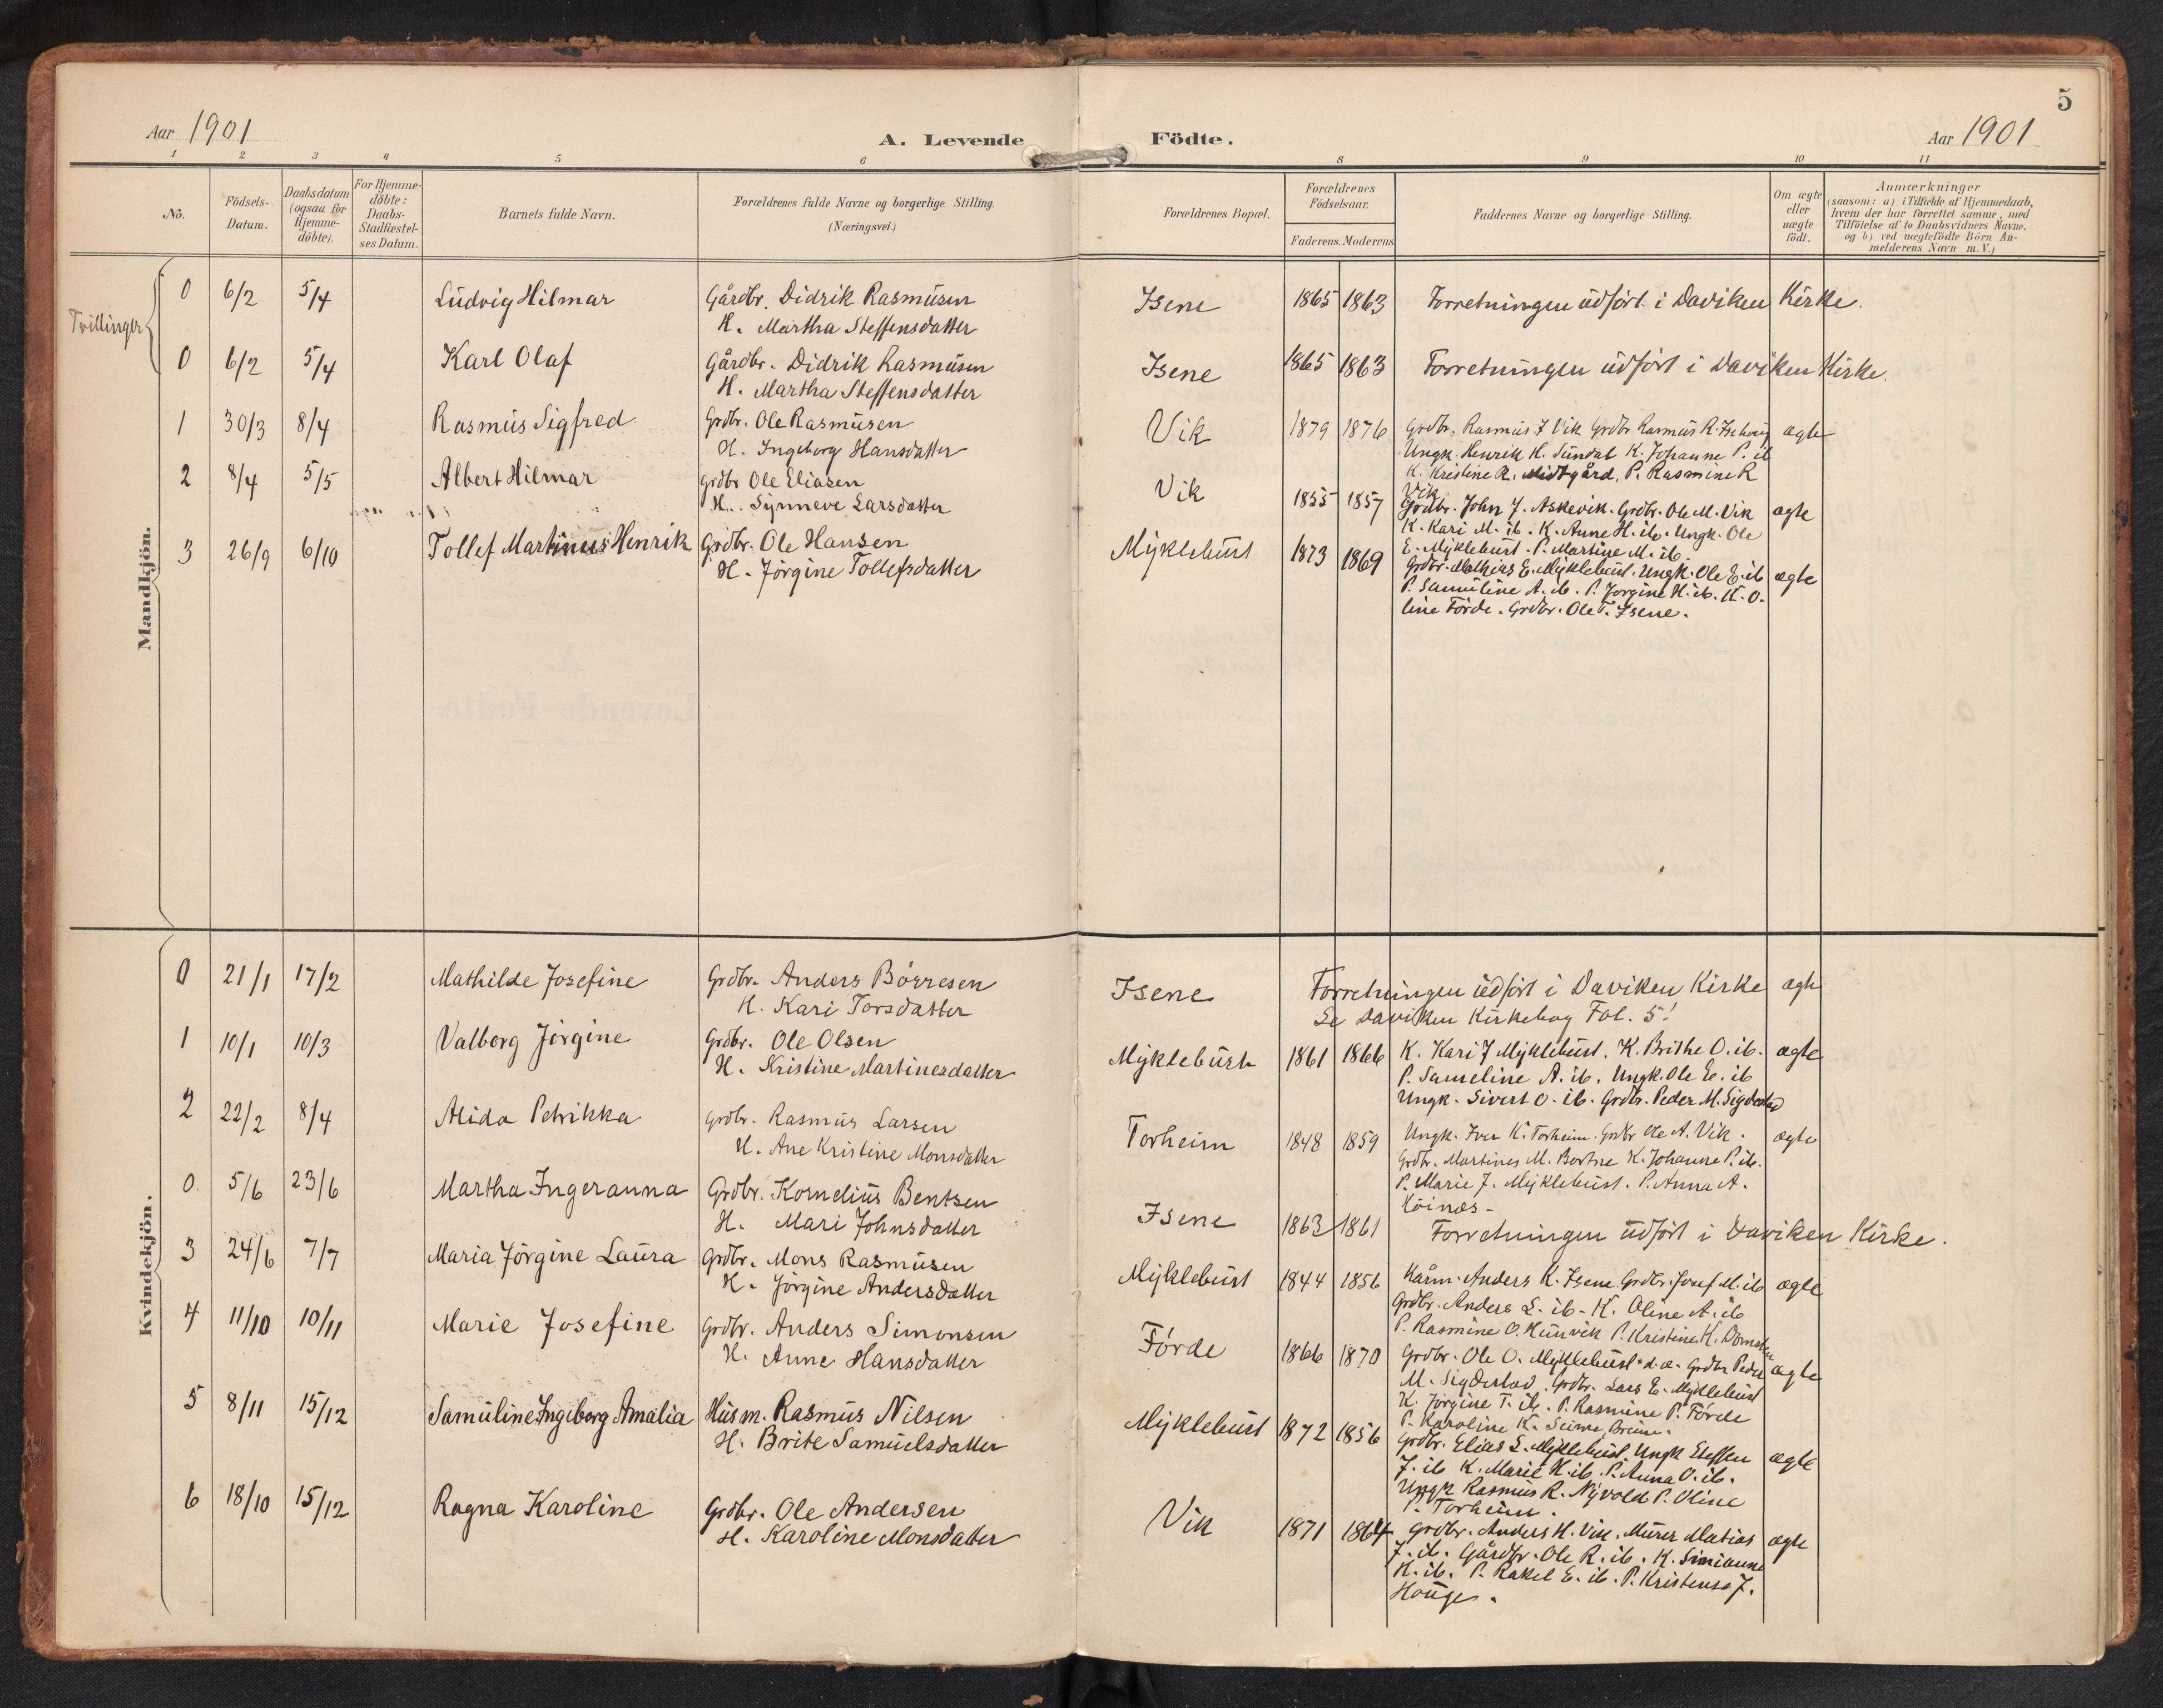 5
Aar 1901
A. Levende Födte.
Aar 1901
1 2 3 4 5 6 8 9 10 11
No.
Födsels-Datum.
Daabsdatum (ogsaa for Hjemme-döbte).
For Hjemme-döbte: Daabs-Stadfæstel-ses Datum.
Barnets fulde Navn.
Forældrenes fulde Navne og borgerlige Stilling.
(Næringsvei.)
Forældrenes Bopæl.
Forældrenes Födselsaar.
Faderens. Moderens.
Faddernes Navne og borgerlige Stilling.
Om ægte eller uægte födt.
Anmærkninger
(saasom: a) i Tilfælde af Hjemmedaab,
hvem der har forrettet samme, med
Tilföielse af to Daabsvidners Navne.
og b) ved uægtefödte Börn An-
melderens Navn m. V.)
Mandkjön.
Tvillinger
0 6/2 5/4 Ludvig Hilmar Gårdbr. Didrik Rasmusen Isene 1865 1863 Forretningen udført i Daviken Kirke.
H. Martha Steffensdatter
0 6/2 5/4 Karl Olaf Gårdbr. Didrik Rasmusen Isene 1865 1863 Forretningen udført i Daviken Kirke.
H. Martha Steffensdatter
1 30/3 8/4 Rasmus Sigfred Grdbr. Ole Rasmusen Vik 1879 1876 Grdbr. Rasmus J Vik Grdbr Rasmus R. ægte
H. Ingeborg Hansdatter Ungk. Henrik H. Sundal K. Johanne P. ib
K. Kristine R. Midtgård, P. Rasmine R
Vik
2 8/4 5/5 Albert Hilmar Grdbr Ole Eliasen Vik 1855 1857 Grdbr. John J. Askevik. Grdbr. Ole M. Vik ægte
H. Synneve Larsdatter K. Kari M. ib. K. Anne H. ib. Ungk. Ole
E. Myklebust. P. Martine M. ib.
3 26/9 6/10 Tollef Martinus Henrik Grdbr. Ole Hansen Myklebust 1873 1869 Grdbr. Mathias E. Myklebust. Ungk. Ole E. ib ægte
H. Jörgine Tollefsdatter P. Samuline A. ib. P. Jorgine H. ib. K. O-
line Förde. Grdbr. Ole T. Isene.
Kvindekjön.
0 21/1 17/2 Mathilde Josefine Grdbr. Anders Börresen Isene Forretningen udført i Daviken Kirke ægte
H. Kari Torsdatter Se Daviken Kirkebog Fol. 5!
1 10/1 10/3 Valborg Jörgine Grdbr. Ole Olsen Myklebust 1861 1866 K. Kari J Myklebust. K. Brithe O. ib. ægte
H. Kristine Martinesdatter P. Sameline A. ib. Ungk. Ole E. ib
Ungk. Sivert O. ib. Grdbr. Peder M. Sigdestad
2 22/2 8/4 Alida Petrikka Grdbr. Rasmus Larsen Torheim 1848 1859 Ungk. Iver K. Torheim. Grdbr Ole A. Vik. ægte
H. Ane Kristine Monsdatter Grdbr. Martines M. Bortne K. Johanne P. ib.
P. Marie J. Myklebust. P. Anna A.
0. 5/6 23/6 Martha Ingeranna Grdbr. Kornelius Bentsen Isene 1863 1861 Forretningen udført i Daviken Kirke.
H. Mari Johnsdatter
3 24/6 7/7 Maria Jörgine Laura Grdbr. Mons Rasmusen Myklebust 1844 1856 Kårm. Anders K. Isene Grdbr. Josef M. ib ægte
H. Jörgine Andersdatter Grdbr. Anders L. ib - K. Oline A. ib
P. Rasmine O. Hunvik P. Kristine K.
4 11/10 10/11 Marie Josefine Grdbr. Anders Simonsen Förde 1866 1870 Grdbr. Ole O. Myklebust d.æ. Grdbr Peder ægte
H. Anne Hansdatter M. Sigdestad. Grdbr. Lars E. Myklebust
K. Jörgine T. ib. P. Rasmine P. Förde
P. Karoline K.
5 8/11 15/12 Samuline Ingeborg Amalia Husm. Rasmus Nilsen Myklebust 1872 1856 Grdbr. Elias L. Myklebust Ungk Steffen ægte
H. Brite Samuelsdatter J. ib K. Marie H. ib. P. Anna O. ib.
Ungk Rasmus R. Nyvold P. Oline
P. Torheim.
6 18/10 15/12 Ragna Karoline Grdbr. Ole Andersen Vik 1871 1864 Grdbr. Anders H. Vik. Murer Matias ægte
H. Karoline Monsdatter J. ib. Gårdbr. Ole R. ib. K. Simianna
K. ib. P. Rakel E. ib. P. Kristense J.
Houge.